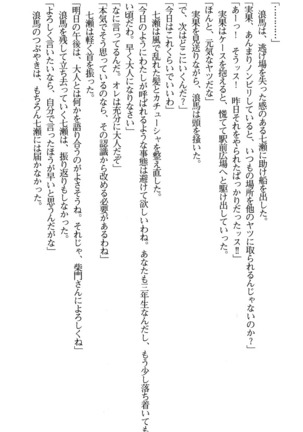 「………」
浪馬は、逃げ場を失った感のある七瀬に助け船を出した。
「実果、あんまりノンビリしていると、いつもの場所を他のヤツに取られるんじゃないのか?」
「あーっ! そうッス! 昨日それをやられたばっかりだったッス!!」
実果はケースを抱えると、慌てて駅前広場へと駆け出していった。
「ほんと、元気なヤツだな」
実果を見送りながら、浪馬は頭を掻いた。
「で、次はどこにいくんだ?」
「今日はこれくらいでいいわ」
七瀬は風で乱れた髪とカチューシャを整え直した。
「今日のようにわたしが呼ばれるような事態は避けて欲しいわね。あなたも三年生なんだし、もう少し落ち着いても
いい頃だわ。早く大人になりなさい」
「なに言ってるんだ。オレは充分に大人だぞ」
「本気でそう思っているのなら、その認識から改める必要があるわね」
七瀬は軽く首を振った。
「明日の午後は、大人とは何かを語り合うのがよさそうね。それじゃ、柴門さんによろしくね」
浪馬を残して立ち去っていく七瀬は、振り返りもしなかった。
「よろしく言いたいなら、自分で言ったほうが早いと思うんだがな」
浪馬のつぶやきは、もちろん七瀬には届かなかった。